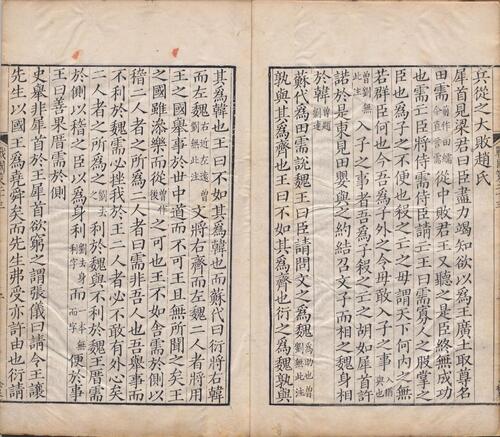 兵從之大敗趙氏
犀首見梁君曰臣盡力竭知欲以爲王廣土取尊名
田需從中敗君王又聽之是臣終無成功
也需亡臣將侍需侍臣請亡王曰需寡人之股掌之
臣也爲子之不便也殺之亡之毋謂天下何內之無
若群臣何也今吾爲子外之令毋敢入子之事入猶與也
曾劉無此注入子之事者吾爲子殺之亡之胡如犀首許
諾於是東見田嬰與之約結召文子而相之魏身相
於韓曾題劉連
蘇代爲田需說魏王曰臣請問文之爲魏爲助也曾劉無此注
孰與其爲齊也王曰不如其爲齊也衍之爲魏孰與
其爲韓也王曰不如其爲韓也而蘇代曰衍將右韓
而左魏右近左遠曾劉無此注文將右齊而左魏二人者將用
王之國舉事於世中道而不可王且無所聞之矣王
之國雖添樂而從曾作後之可也王不如舍需於側以
稽二人者之所爲二人者曰需非吾人也吾舉事而
不利於魏需必挫我於王二人者必不敢有外心矣
二人者之所爲之劉去之利於魏與不利於魏王厝需
於側以稽之臣以爲身利劉去身利字而劉本無而字便於事
王曰善果厝需於側
史舉非犀首于王犀首欲窮之謂張儀曰請令王讓
先生以國王爲堯舜矣而先生弗受亦許由也衍請